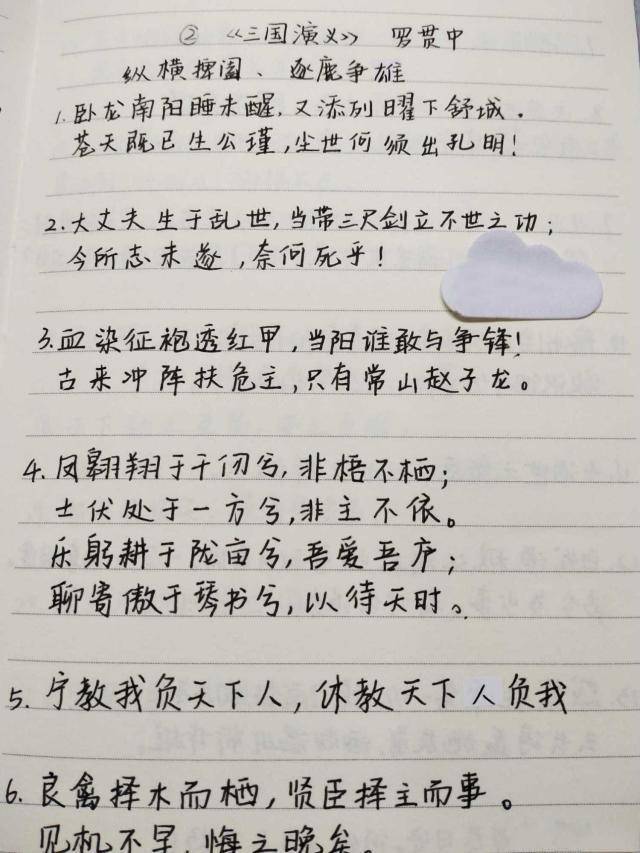 ② 《三国演义》 罗贯中
纵横捭阖、逐鹿争雄
1.卧龙南阳睡未醒,又添列曜下舒城.
苍天既已生公瑾,尘世何须出孔明!
2.大丈夫生于乱世,当带三尺剑立不世之功;
今所志未遂,奈何死乎!
3.血染征袍透红甲,当阳谁敢与争锋!
古来冲阵扶危主,只有常山赵子龙。
4.凤翱翔于千仞兮,非梧不栖;
士伏处于一方兮,非主不依。
乐躬耕于陇亩兮,吾爱吾庐;
聊寄傲于琴书兮,以待天时。
5.宁教我负天下人,休教天下人负我
6.良禽择木而栖,贤臣择主而事。
见机不早,悔之晚矣。